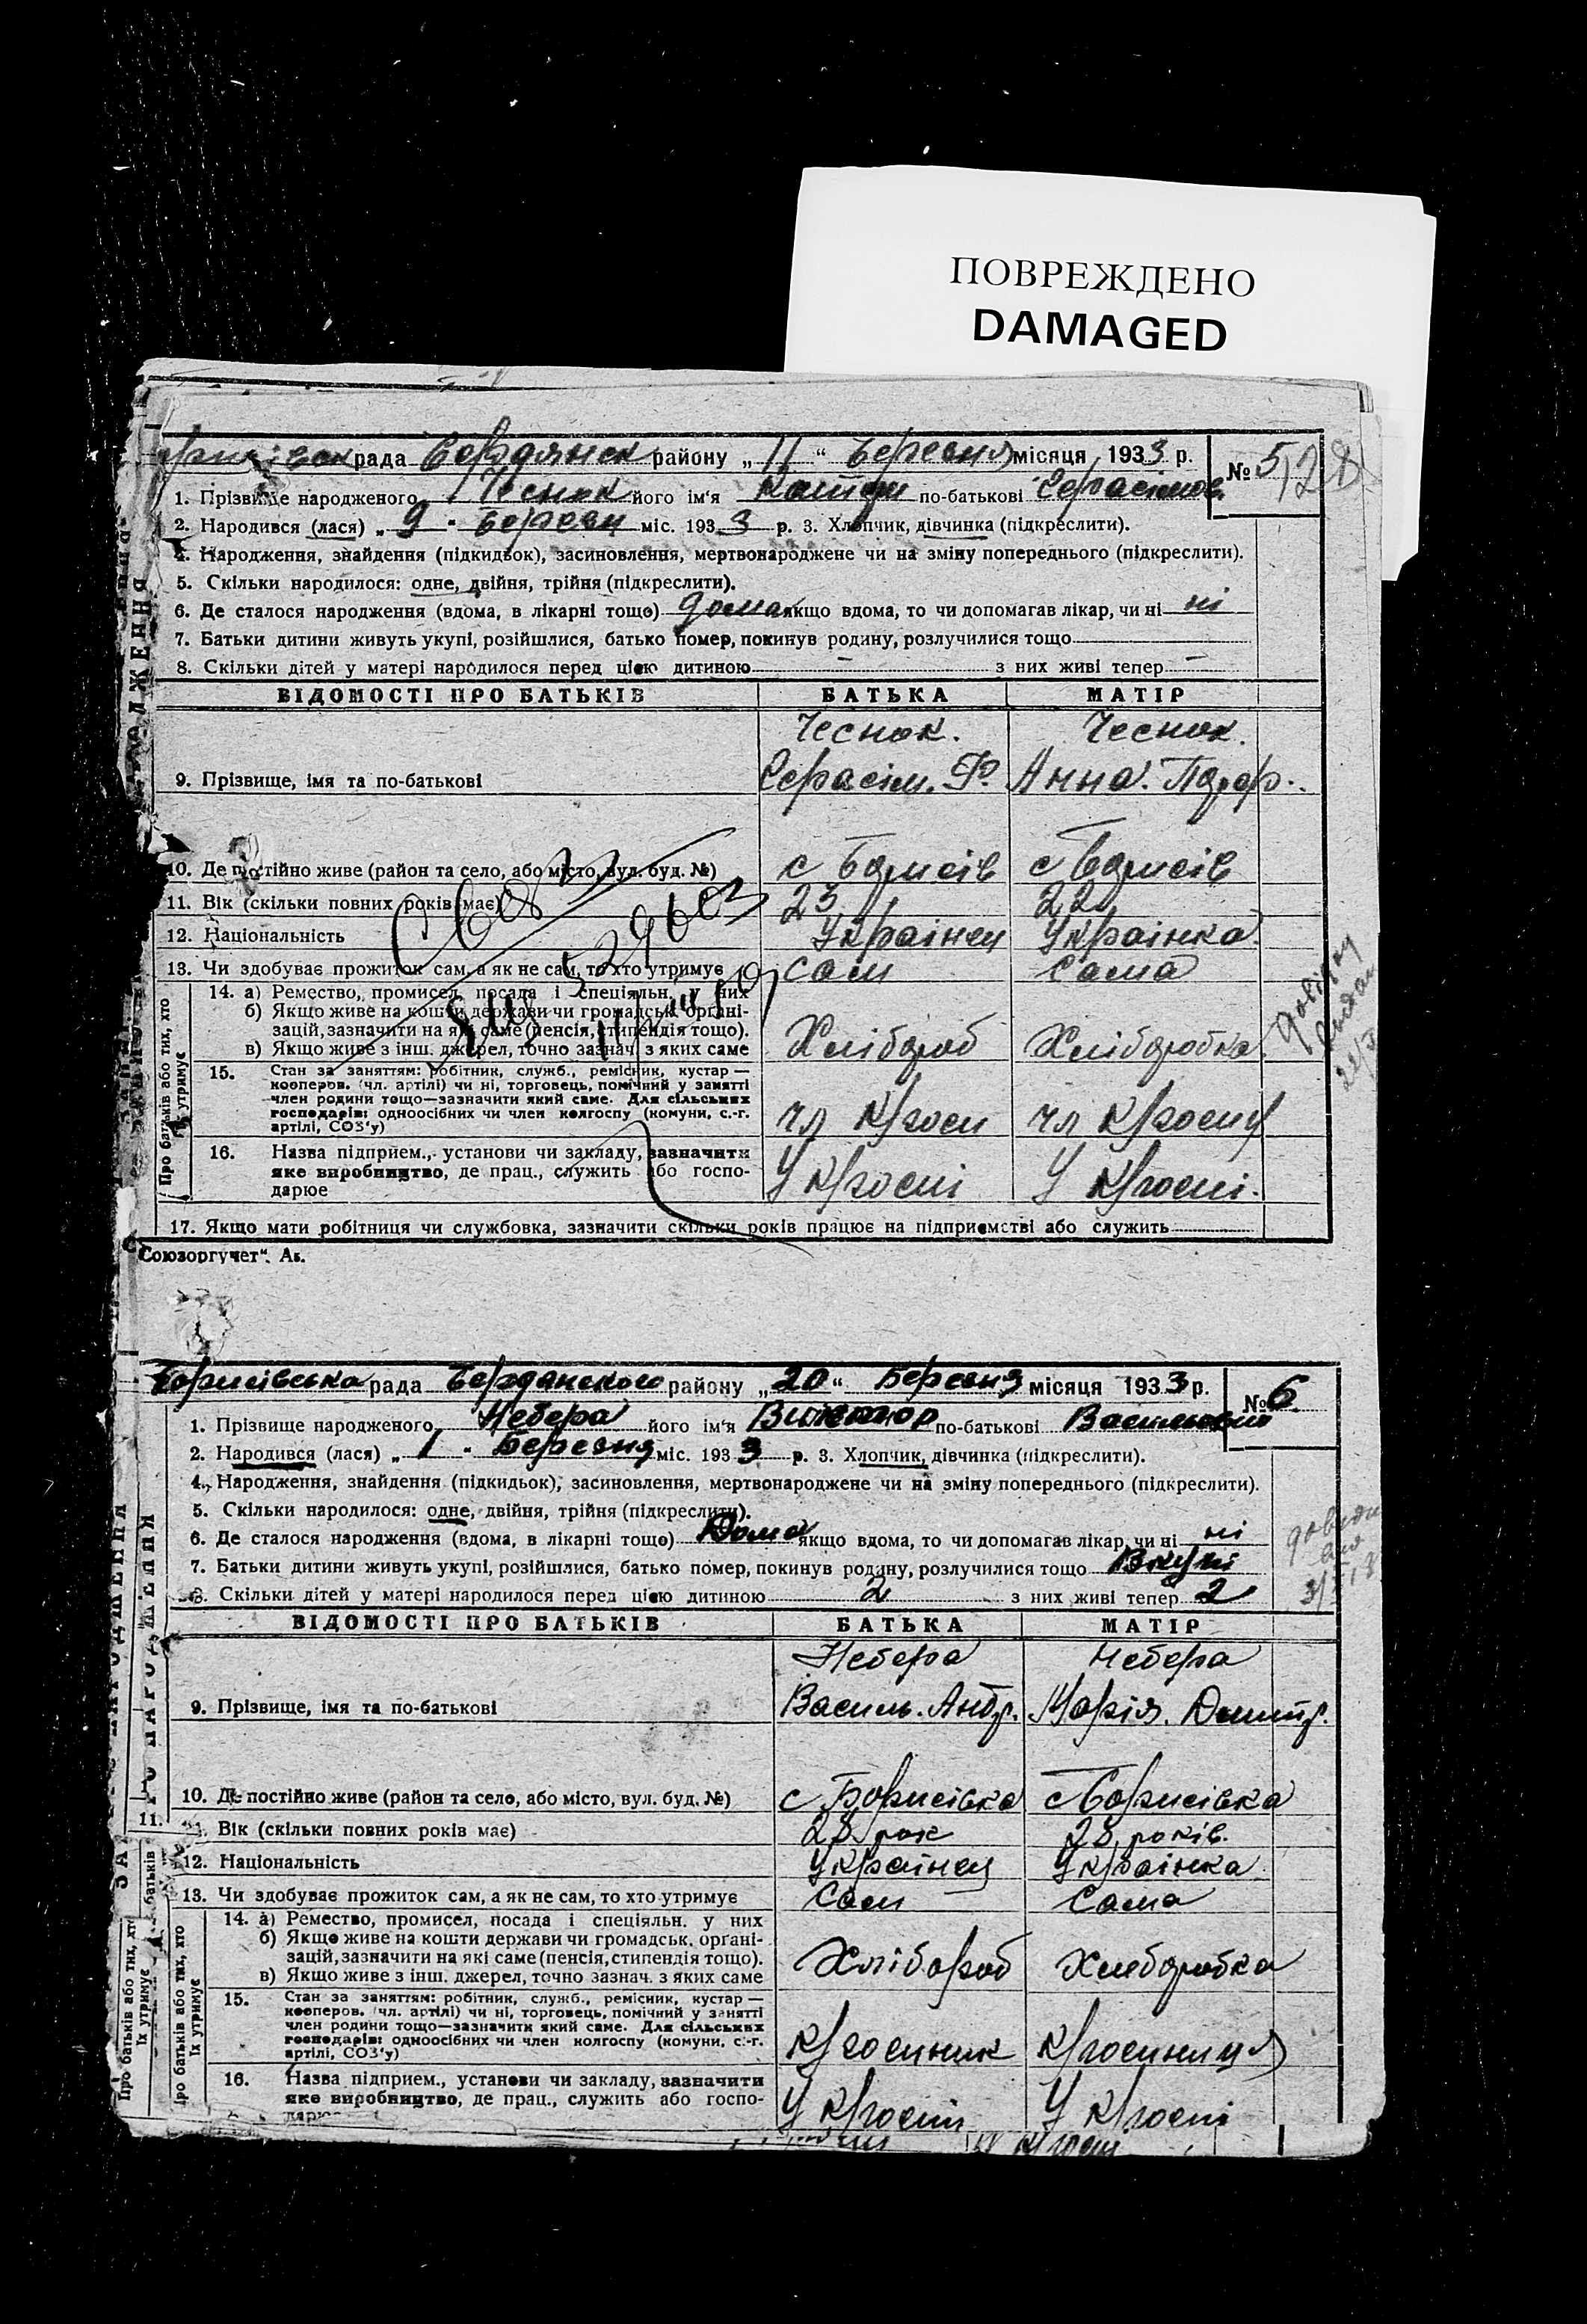 ПОВРЕЖДЕНО
DAMAGED
рада Бердянськ району „11“ Березня місяця 1933 р. № 5
1. Прізвище народженого Чеснок його ім'я по-батькові
2. Народився (лася) „9“ Березн міс. 1933 р. 3. Хлопчик, дівчинка (підкреслити).
4. Народження, знайдення (підкидьок), засиновлення, мертвонароджене чи на зміну попереднього (підкреслити).
5. Скільки народилося: одне, двійня, трійня (підкреслити).
6. Де сталося народження (вдома, в лікарні тощо) дома якщо вдома, то чи допомагав лікар, чи ні ні
7. Батьки дитини живуть укупі, розійшлися, батько помер, покинув родину, розлучилися тощо
8. Скільки дітей у матері народилося перед цією дитиною – з них живі тепер –
ВІДОМОСТІ ПРО БАТЬКІВ БАТЬКА МАТІР
Чеснок. Чеснок.
9. Прізвище, імя та по-батькові Серасім. Ф. Анна. Парф.
10. Де постійно живе (район та село, або місто, вул. буд. №) с Борисів с Борисів
11. Вік (скільки повних років має) 23 22
12. Національність Українец Українка
13. Чи здобуває прожиток сам, а як не сам, то хто утримує Сам Сама
Про батьків або тих, хто їх утримує
14. а) Ремество, промисел, посада і спеціяльн. у них
б) Якщо живе на кошти держави чи громадськ. органі-
зацій, зазначити на які саме (пенсія, стипендія тощо).
в) Якщо живе з інш. джерел, точно зазнач. з яких саме Хлібороб Хліборобка
15. Стан за заняттям: робітник, служб., ремісник, кустар —
кооперов. (чл. артілі) чи ні, торговець, помічний у занятті
член родини тощо—зазначити який саме. Для сільських
господарів: одноосібних чи член колгоспу (комуни, с.-г.
артілі, СОЗ'у) чл К/госп чл К/госпу
16. Назва підприєм., установи чи закладу, зазначити
яке виробництво, де прац., служить або госпо-
дарює У К/госпі У К/госпі.
17. Якщо мати робітниця чи службовка, зазначити скільки років працює на підприємстві або служить
Союзоргучет“.
Борисівська рада Берданського району „20“ Березня місяця 1933 р. № 6
1. Прізвище народженого Небера його ім'я Виктор по-батькові Васильович
2. Народився (лася) „1“ Березня міс. 1933 р. 3. Хлопчик, дівчинка (підкреслити).
4. Народження, знайдення (підкидьок), засиновлення, мертвонароджене чи на зміну попереднього (підкреслити).
5. Скільки народилося: одне, двійня, трійня (підкреслити).
6. Де сталося народження (вдома, в лікарні тощо) Дома якщо вдома, то чи допомагав лікар, чи ні ні
7. Батьки дитини живуть укупі, розійшлися, батько помер, покинув родину, розлучилися тощо Вкупі
8. Скільки дітей у матері народилося перед цією дитиною 2 з них живі тепер 2
ВІДОМОСТІ ПРО БАТЬКІВ БАТЬКА МАТІР
Небера Небера
9. Прізвище, імя та по-батькові Василь. Андр. Марія. Дмитр.
10. Де постійно живе (район та село, або місто, вул. буд. №) с Борисівка с Борисівка
11. Вік (скільки повних років має) 28 рок 28 років.
12. Національність Українец Українка
13. Чи здобуває прожиток сам, а як не сам, то хто утримує Сам Сама
Про батьків або тих, хто їх утримує
14. а) Ремество, промисел, посада і спеціяльн. у них
б) Якщо живе на кошти держави чи громадськ. органі-
зацій, зазначити на які саме (пенсія, стипендія тощо).
в) Якщо живе з інш. джерел, точно зазнач. з яких саме Хлібороб Хліборобка
15. Стан за заняттям: робітник, служб., ремісник, кустар —
кооперов. (чл. артілі) чи ні, торговець, помічний у занятті
член родини тощо—зазначити який саме. Для сільських
господарів: одноосібних чи член колгоспу (комуни, с.-г.
артілі, СОЗ'у) К/госпник К/госпниця
16. Назва підприєм., установи чи закладу, зазначити
яке виробництво, де прац., служить або госпо-
дарює У К/госпі У К/госпі